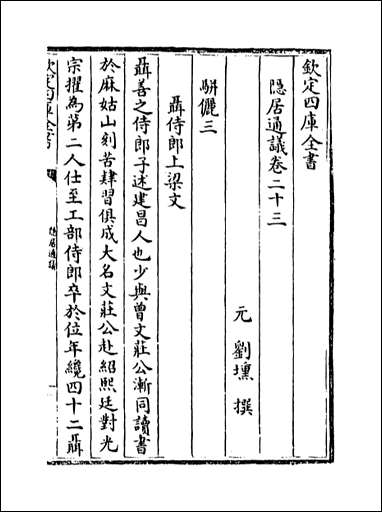 欽定四庫全書
隠居通議卷二十三
元 劉壎 撰
駢儷三
聶侍郎上梁文
聶善之侍郎子述建昌人也少與曾文莊公漸同讀書
於麻姑山刻苦肄習俱成大名文莊公赴紹熙廷對光
宗擢為第二人仕至工部侍郎卒於位年纔四十二聶
欽定四庫全書
隠居通議
一